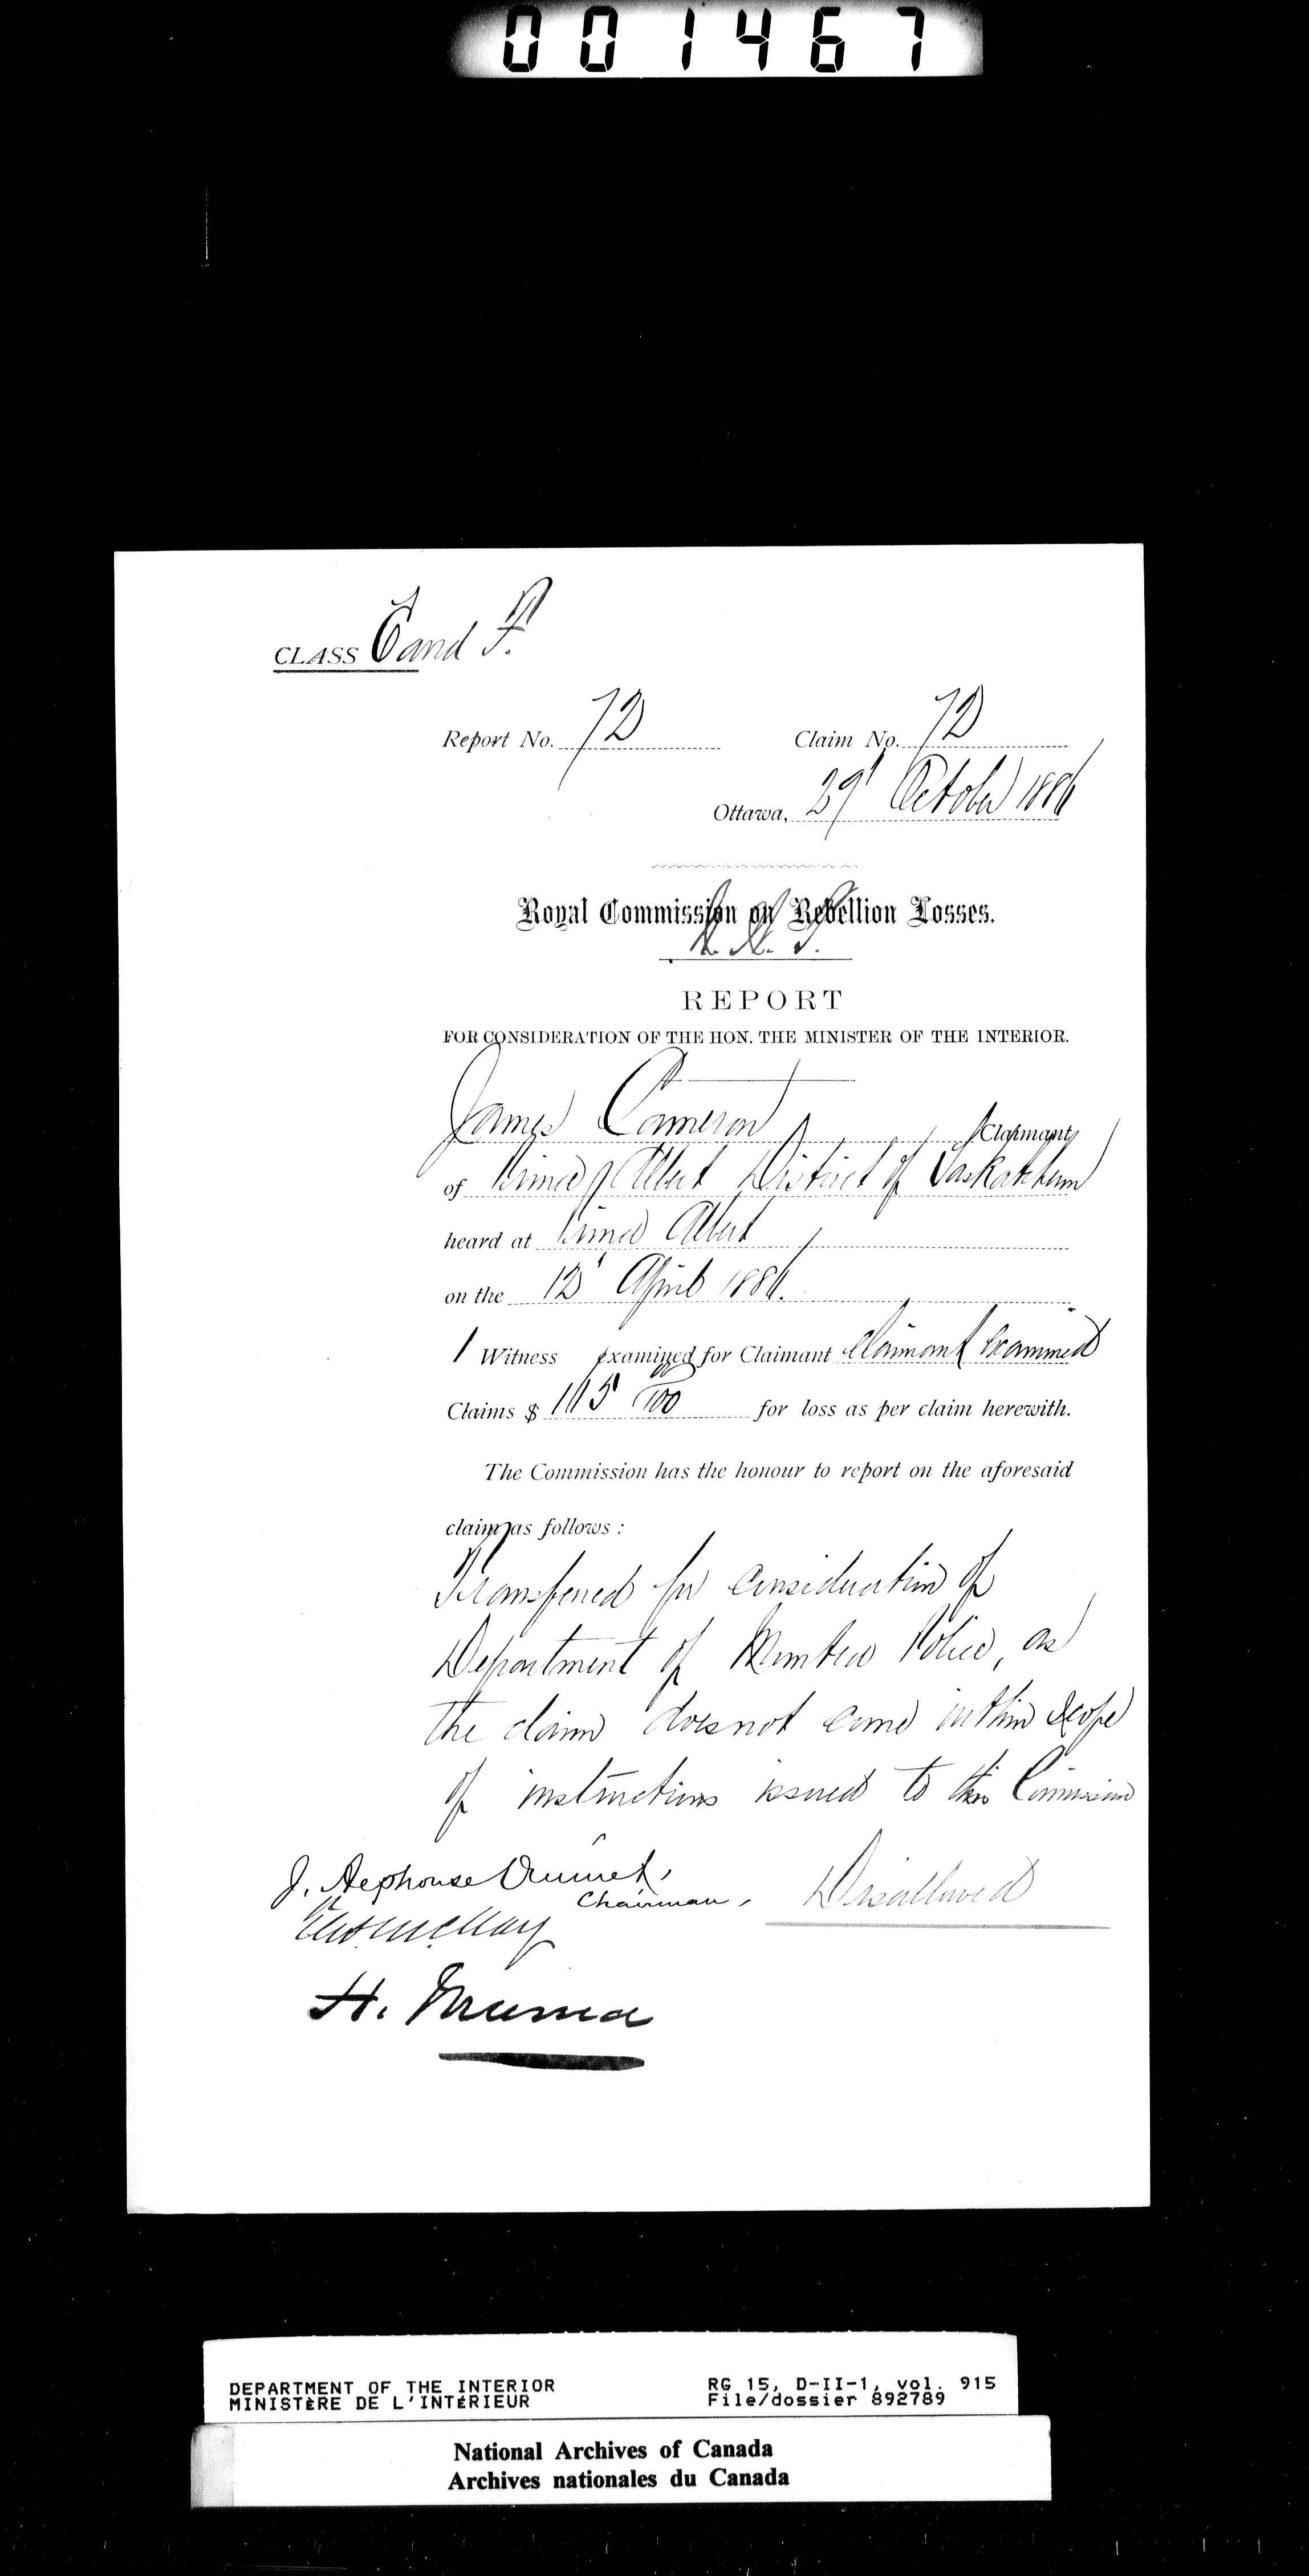 001467
CLASS C and F.
Report No. 72 Claim No. 72
Ottawa, 29' October 1886
Royal Commission on Rebellion Losses.
REPORT
FOR CONSIDERATION OF THE HON. THE MINISTER OF THE INTERIOR.
James Cameron Claimant
of Prince Albert District of Saskatchewan
heard at Prince Albert
on the 12' April 1886.
1 Witness examined for Claimant Claimant Examined
Claims $ for loss as per claim herewith.
The Commission has the honour to report on the aforesaid
claim as follows :
Transferred for consideration of
Department of Mounted Police, as
the claim does not come within scope
of instructions issued to this Commission
J. Alphonse Ouimet,
Chairman, Disallowed
H. Muma
DEPARTMENT OF THE INTERIOR RG 15, D-II-1, vol. 915
MINISTÈRE DE L'INTÉRIEUR File/dossier 892789
National Archives of Canada
Archives nationales du Canada